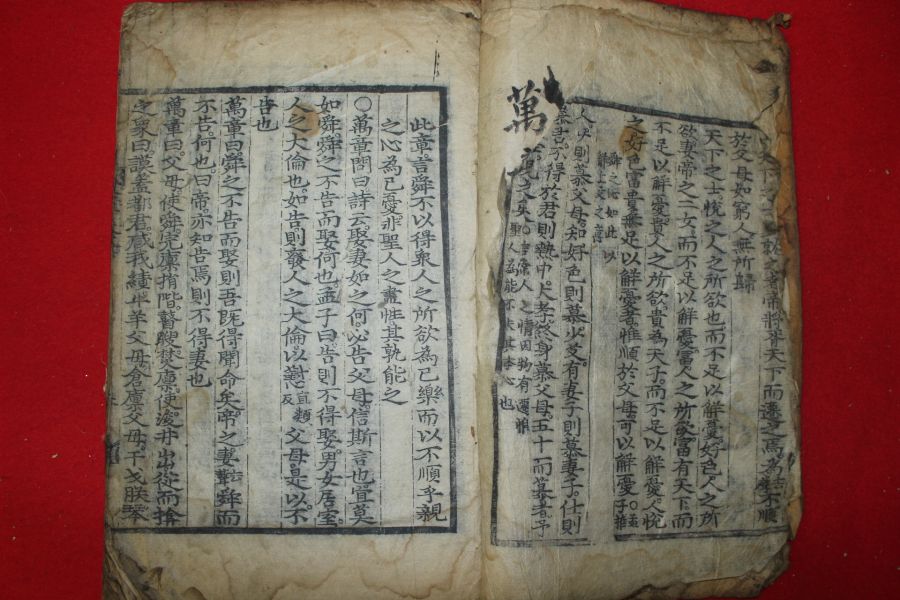 天下之士多就之者帝將胥天下而遷之焉為不順
於父母如窮人無所歸
天下之士悅之人之所欲也而不足以解憂好色人之所
欲妻帝之二女而不足以解憂富人之所欲富有天下而
不足以解憂貴人之所欲貴為天子而不足以解憂人悅
之好色富貴無足以解憂者惟順於父母可以解憂○孟子推
舜之心如此以
解上文之意
人少則慕父母知好色則慕少艾有妻子則慕妻子仕則
慕君不得於君則熱中大孝終身慕父母五十而慕者予
○言常人之情因物有遷惟
聖人為能不失其本心也
萬章
此章言舜不以得衆人之所欲為己樂而以不順乎親
之心為己憂非聖人之盡性其孰能之
○萬章問曰詩云娶妻如之何必告父母信斯言也宜莫
如舜舜之不告而娶何也孟子曰告則不得娶男女居室
人之大倫也如告則廢人之大倫以懟直類反父母是以不
告也
萬章曰舜之不告而娶則吾既得聞命矣帝之妻舜而
不告何也曰帝亦知告焉則不得妻也
萬章曰父母使舜完廩捐階瞽瞍焚廩使浚井出從而揜
之象曰謨蓋都君咸我績牛羊父母倉廩父母干戈朕琴